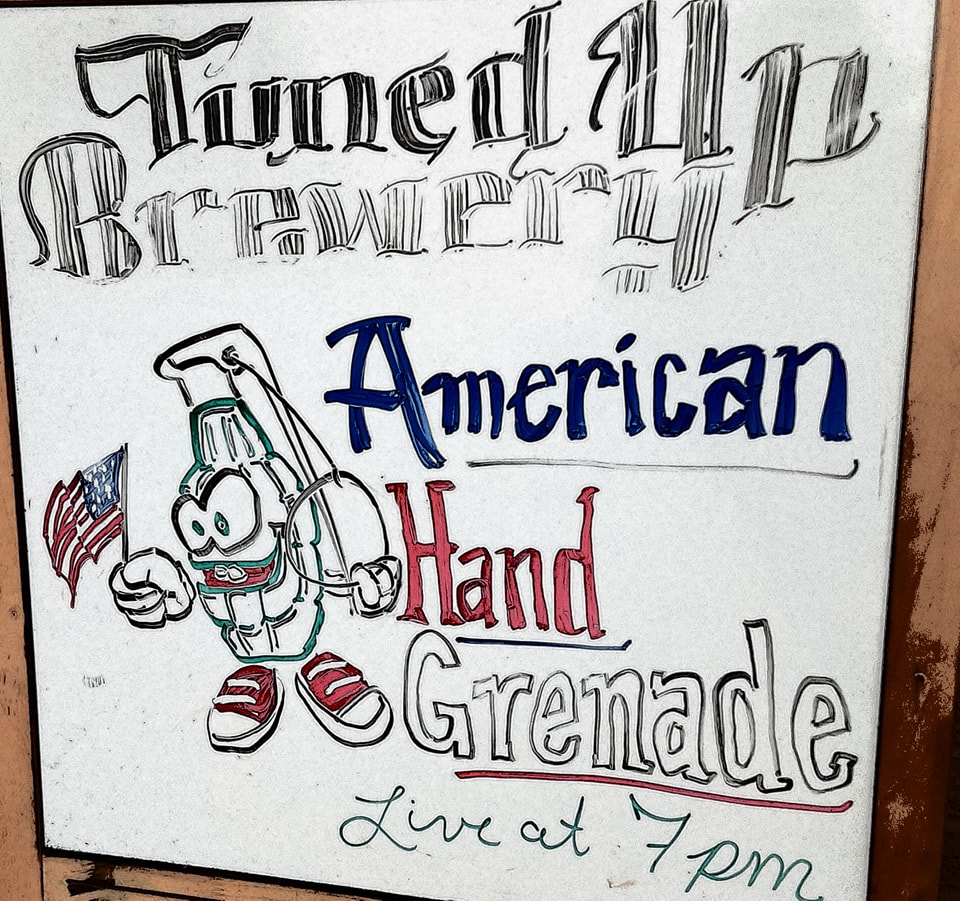 Tuned Up
Brewery
American
Hand
Grenade
Live at 7 pm